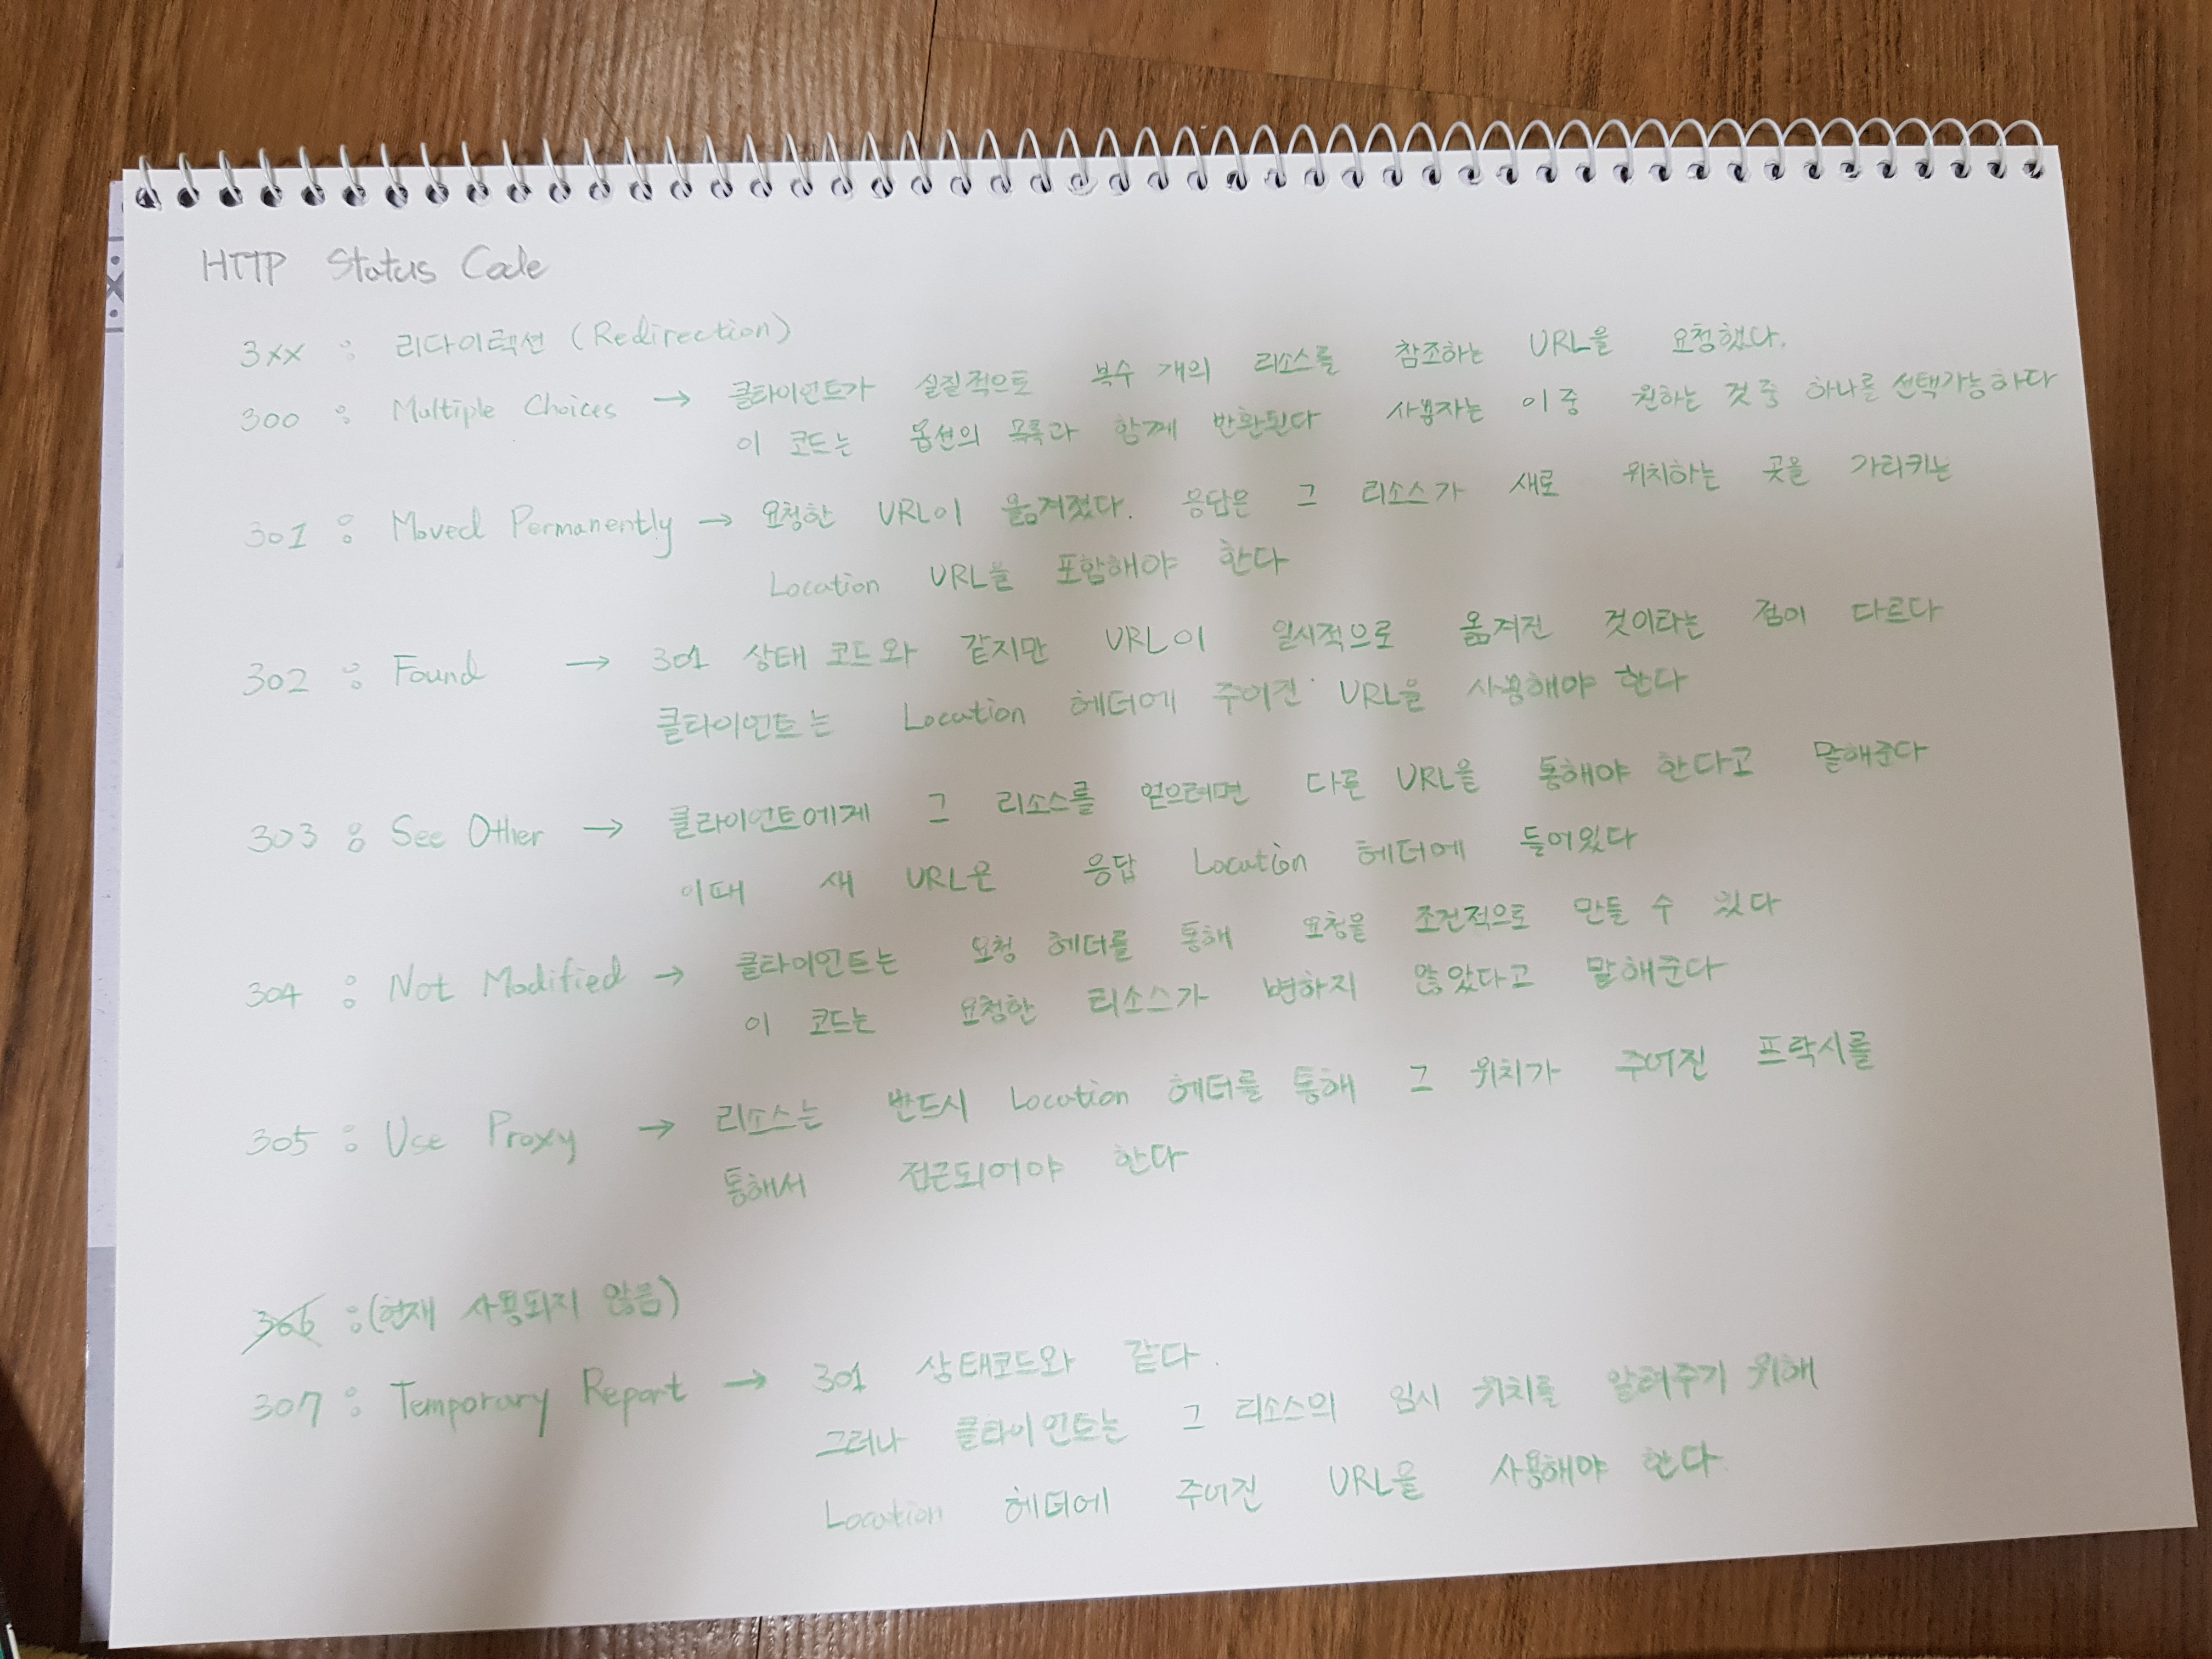 HTTP Status Code
3xx : 리다이렉션 (Redirection)
300 : Multiple Choices → 클라이언트가 실질적으로 복수 개의 리소스를 참조하는 URL을 요청했다.
이 코드는 옵션의 목록과 함께 반환된다 사용자는 이 중 원하는 것 중 하나를 선택가능하다
301 : Moved Permanently → 요청한 URL이 옮겨졌다. 응답은 그 리소스가 새로 위치하는 곳을 가리키는
Location URL을 포함해야 한다
302 : Found → 301 상태 코드와 같지만 URL이 일시적으로 옮겨진 것이라는 점이 다르다
클라이언트는 Location 헤더에 주어진 URL을 사용해야 한다
303 : See Other → 클라이언트에게 그 리소스를 얻으려면 다른 URL을 통해야 한다고 말해준다
이때 새 URL은 응답 Location 헤더에 들어있다
304 : Not Modified → 클라이언트는 요청 헤더를 통해 요청을 조건적으로 만들 수 있다
이 코드는 요청한 리소스가 변하지 않았다고 말해준다
305 : Use Proxy → 리소스는 반드시 Location 헤더를 통해 그 위치가 주어진 프락시를
통해서 접근되어야 한다
306 : (현재 사용되지 않음)
307 : Temporary Report → 301 상태코드와 같다.
그러나 클라이언트는 그 리소스의 임시 위치를 알려주기 위해
Location 헤더에 주어진 URL을 사용해야 한다